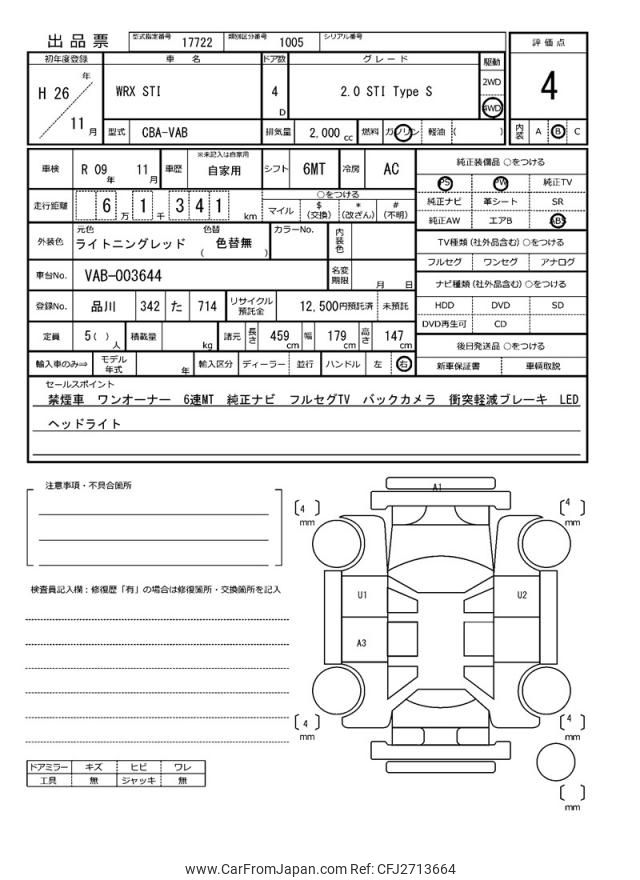 出品票 型式指定番号 17722 類別区分番号 1005 シリアル番号
評価点
4
内装 A B C
初年度登録 車名 ドア数 グレード 駆動
H 26 年 11 月
WRX STI 4 D 2.0 STI Type S
2WD
4WD
型式 CBA-VAB 排気量 2,000 cc 燃料 ガソリン 軽油 ( )
車検 R 09 年 11 月 車歴 ※未記入は自家用 自家用 シフト 6MT 冷房 AC
走行距離 6 万 1 千 3 4 1 km
○をつける
マイル $ (交換) * (改ざん) # (不明)
外装色 元色 ライトニングレッド 色替 ( 色替無 ) カラーNo. 内装色
車台No. VAB-003644 名変期限 月 日
登録No. 品川 342 た 714 リサイクル預託金 12,500円預託済 未預託
定員 5( ) 人 積載量 kg 諸元 長さ 459 cm 幅 179 cm 高さ 147 cm
輸入車のみ⇒ モデル年式 年 輸入区分 ディーラー 並行 ハンドル 左 右
純正装備品 ○をつける
PS PW 純正TV
純正ナビ 革シート SR
純正AW エアB ABS
TV種類 (社外品含む) ○をつける
フルセグ ワンセグ アナログ
ナビ種類 (社外品含む) ○をつける
HDD DVD SD
DVD再生可 CD
後日発送品 ○をつける
新車保証書 車輌取説
セールスポイント
禁煙車 ワンオーナー 6速MT 純正ナビ フルセグTV バックカメラ 衝突軽減ブレーキ LED
ヘッドライト
注意事項・不具合箇所
検査員記入欄：修復歴「有」の場合は修復箇所・交換箇所を記入
A1
〔4 〕 mm
〔4 〕 mm
U1 U2
A3
〔4 〕 mm
〔4 〕 mm
〔 〕 mm
ドアミラー キズ ヒビ ワレ
工具 無 ジャッキ 無
www.CarFromJapan.com Ref: CFJ2713664